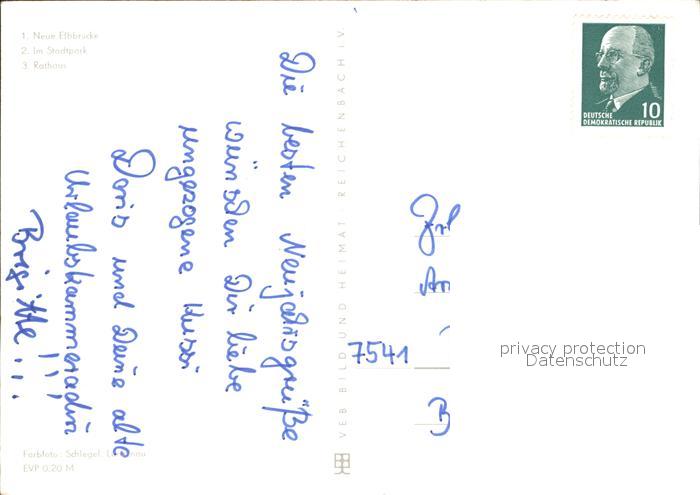 1. Neue Elbbrücke
2. Im Stadtpark
3. Rathaus
Die besten Neujahrsgrüße
wünschen Dir liebe
ungezogene Mussi
Doris und Deine alte
Urlaubskammeradin
Brigitte!!!
VEB BILD UND HEIMAT REICHENBACH I.V.
DEUTSCHE
DEMOKRATISCHE REPUBLIK
10
Frl
An
7541
B
privacy protection
Datenschutz
Farbfoto: Schlegel,
EVP 0,20 M